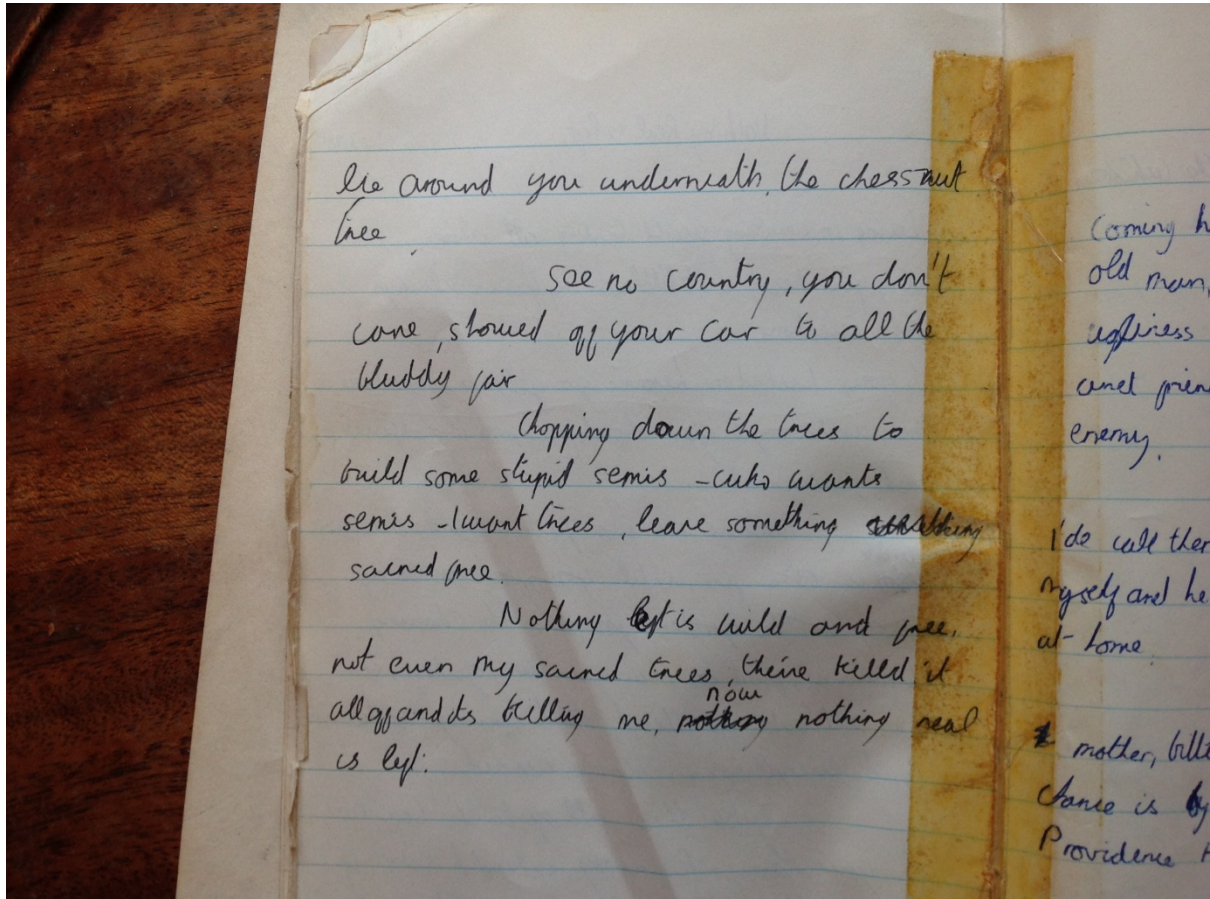 lie around you underneath, the chessnut
tree.
see no country, you don't
care, showed off your car to all the
bluddy fair
Chopping down the trees to
build some stupid semis - who wants
semis - I want trees, leave something
sacred free.
Nothing left is wild and free,
not even my sacred trees, theive killed it
all off and its killing me,
now
nothing real
is left.
Coming h
old man,
ugliness
and frien
enemy.
I'de call ther
myself and he
at home.
mother, bille
chance is by
Providence